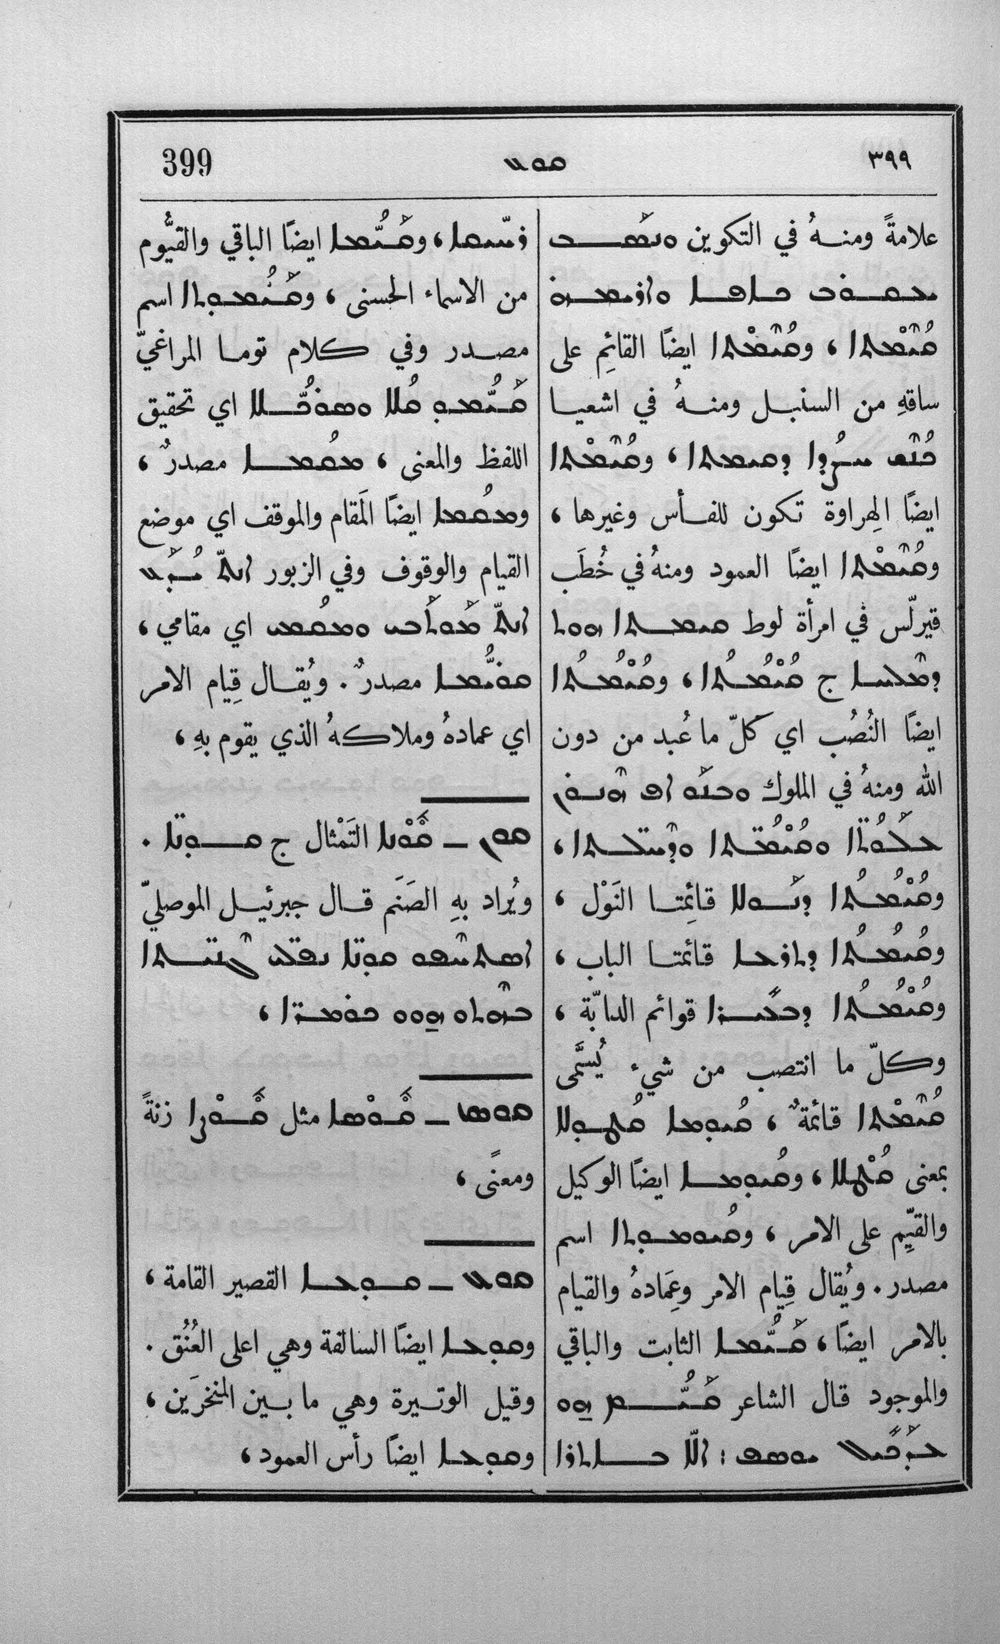 ٣٩٩ ܩܘܥ 399
علامةً ومنهُ في التكوين ܘܢܣܒ
ܝܥܩܘܒ ܟܐܦܐ ܘܐܪܝܡܗ
ܩܝܡܬܐ ، وܩܝܡܬܐ ايضًا القائِم على
ساقهِ من السنبل ومنهُ في اشعيا
ܟܢܫ ܚܨܕܐ ܕܩܝܡܬܐ ، وܩܝܡܬܐ
ايضًا الهِراوة تكون للفأس وغيرها ،
وܩܝܡܬܐ ايضًا العمود ومنهُ في خُطَب
قيرلّس في امرأة لوط ܩܝܡܬܐ ܗܘܬ
ܕܡܠܚܐ ج ܩܝܡܬܐ ، وܩܝܡܬܐ
ايضًا النُصُب اي كلّ ما عُبد من دون
الله ومنهُ في الملوك ܘܒܢܘ ܐܦ ܗܢܘܢ
ܥܠܘܬܐ ܘܩܝܡܬܐ ܘܕܚܠܬܐ ،
وܩܝܡܬܐ ܕܢܘܠܐ قائِمتا النَوْل ،
وܩܝܡܬܐ ܕܬܪܥܐ قائمتا الباب ،
وܩܝܡܬܐ ܕܒܥܝܪܐ قوائم الدابّة ،
وكلّ ما انتصب من شيءٍ يُسمَّى
ܩܝܡܬܐ قائمةٌ ، ܩܝܘܡܐ ܩܛܘܠܐ
بمعنى ܩܛܠܐ ، وܩܝܘܡܐ ايضًا الوكيل
والقيِّم على الامر ، وܩܝܘܡܘܬܐ اسم
مصدر . ويُقال قِيام الامر وعِمَادهُ والقيام
بالامر ايضًا ، ܩܝܡܐ الثابت والباقي
والموجود قال الشاعر ܩܝܡ ܗܘ
ܥܕܟܝܠ ܝܘܣܦ : ܐܠܐ ܒܐܬܪܐ
ܪܚܝܩܐ ، وܩܝܡܐ ايضًا الباقي والقيُّوم
من الاسماء الحسنى ، وܩܝܡܘܬܐ اسم
مصدر وفي كلام توما المراغيّ
ܩܝܡܘ ܡܠܐ ܘܣܘܟܠܐ اي تحقيق
اللفظ والمعنى ، ܡܩܡܐ مصدرٌ ،
وܡܩܡܐ ايضًا المَقام والموقف اي موضع
القيام والوقوف وفي الزبور ܐܢܬ ܝܕܥ
ܐܢܬ ܡܘܬܒܝ ܘܡܩܡܝ اي مقامي ،
ܩܘܝܡܐ مصدرٌ . ويُقال قِيام الامر
اي عمادهُ وملاكهُ الذي يقوم بهِ ،
ܩܘܢ ـ ܩܘܢܐ التَمْثال ج ܩܘܢܐ .
ويُراد بهِ الصَنَم قال جبرئيل الموصليّ
ܩܘܢܐ
ܗܘܘ
ܩܘܣ ـ ܩܘܣܐ مثل زنةً
ومعنًى ،
ܩܘܥ ـ ܩܘܥܐ القصير القامة ،
وܩܘܥܐ ايضًا السالفة وهي اعلى العُنُق .
وقيل الوتيرة وهي ما بين المنخرَين ،
وܩܘܥܐ ايضًا رأس العمود ،